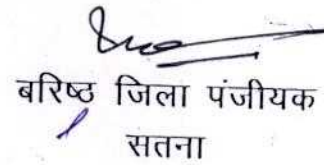 बरिष्ठ जिला पंजीयक
सतना